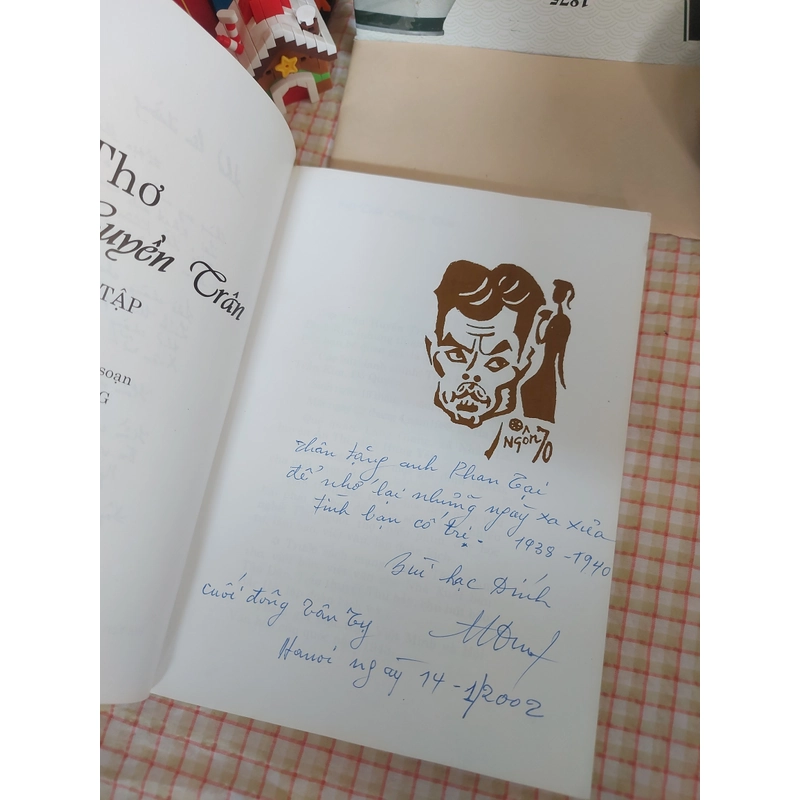 Thơ
uyền Trân
TẬP
soạn
G
1875
NGÔN 70
Thân tặng anh Phan Tại
để nhớ lại những ngày xa xưa
tình bạn cố tri. 1938-1940
Bùi hạc Đính
cuối đông tân tỵ
Hanoi ngày 14-1/2002